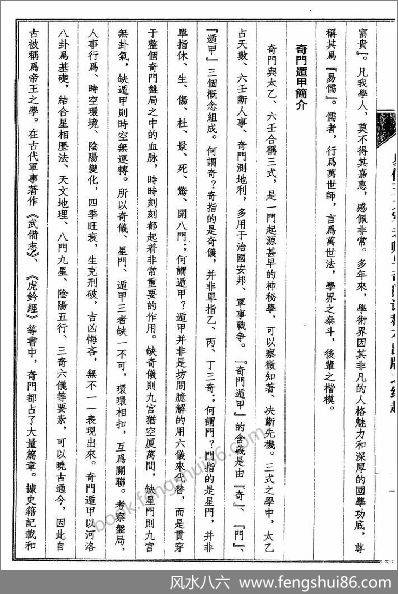 富貴』。凡我學人，莫不得其嘉惠，感佩非常。多年來，學術界因其非凡的人格魅力和深厚的國學功底，尊
稱其爲『易儒』。儒者，行爲萬世師，言爲萬世法，學界之泰斗，後輩之楷模。
奇門遁甲簡介
奇門與太乙、六壬合稱三式，是一門起源甚早的神秘學，可以察微知著、决斷先機。三式之學中，太乙
占天數、六壬斷人事、奇門測地利，多用于治國安邦、軍事戰爭。『奇門遁甲』的含義是由『奇』、『門』、
『遁甲』三個概念組成。何謂奇？奇指的是奇儀，并非單指乙、丙、丁三奇；何謂門？門指的是星門，并非
單指休、生、傷、杜、景、死、驚、開八門；何謂遁甲？遁甲并非是坊間臆解的用六儀來代替，而是貫穿
于整個奇門盤局之中的血脉，時時刻刻都起着非常重要的作用。缺奇儀則九宫猶空厦萬間，缺星門則九宫
無卦氣，缺遁甲則時空無運轉。所以奇儀、星門、遁甲三者缺一不可，環環相扣，互爲關聯。考察盤局，
人事行爲、時空環境、陰陽變化、四季旺衰、生克刑破、吉凶悔吝，無不一一表現出來。奇門遁甲以河洛
八卦爲基礎，結合星相曆法、天文地理、八門九星、陰陽五行、三奇六儀等要素，可以曉古通今，因此自
古被稱爲帝王之學。在古代軍事著作《武備志》、《虎鈐經》等書中，奇門都占了大量篇章。據史籍記載和
book.fengshui86.com
风水八六 | www.fengshui86.com